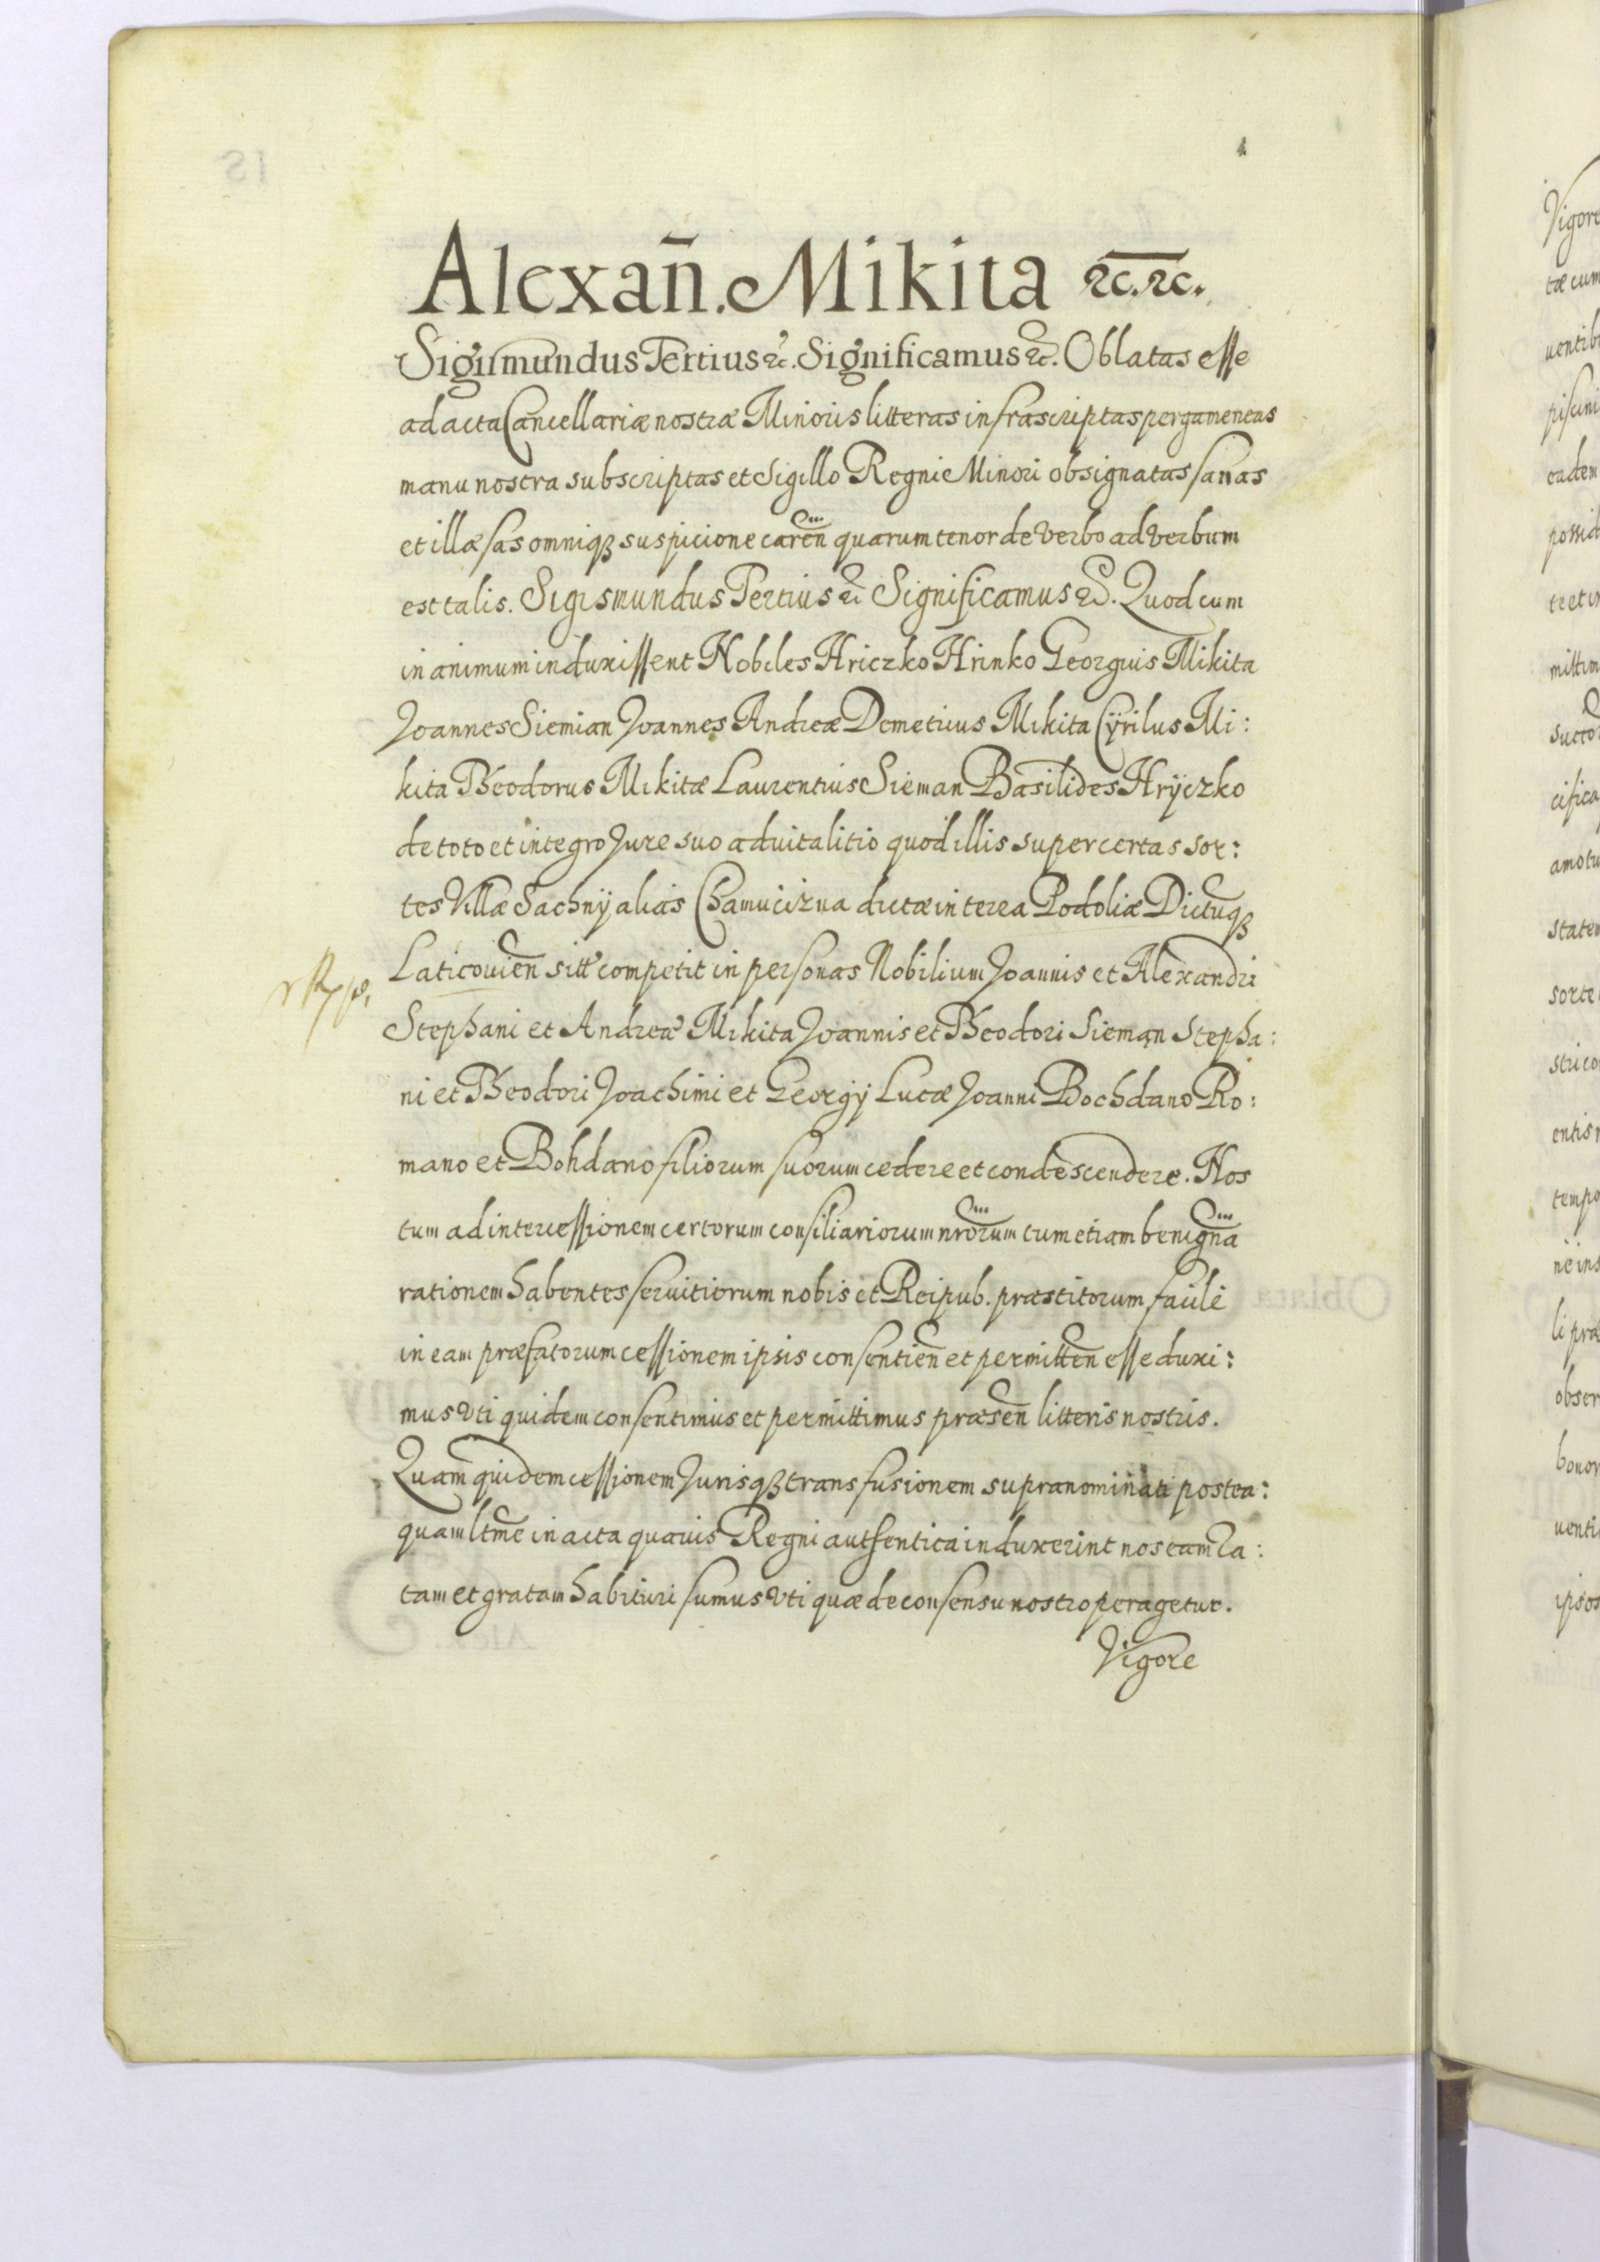 Alexan̄. Mikita ꝛc. ꝛc.
Sigismundus Tertius ꝛc. Significamus ꝛc. Oblatas esse
ad acta Cancellariæ nostræ Minoris litteras infrascriptas pergameneas
manu nostra subscriptas et Sigillo Regni Minori obsignatas sanas
et illæsas omniqꝫ suspicione caren̄ quarum tenor de verbo ad verbum
est talis. Sigismundus Tertius ꝛc Significamus ꝛc. Quod cum
in animum induxissent Nobiles Hriczko Hrinko Georgius Mikita
Joannes Siemian Joannes Andreæ Demetrius Mikita Cyrilus Mi:
kita Theodorus Mikitæ Laurentius Sieman Basilides Hryczko
de toto et integro Jure suo advitalitio quod illis super certas sor:
tes Villæ Sachny alias Chamucizna dictæ in terea Podoliæ Dictuqꝫ
Laticovien̄ sitt competit in personas Nobilium Joannis et Alexandri
Stephani et Andreæ Mikita Joannis et Theodori Sieman Stepha:
ni et Theodori Joachimi et Georgy Lucæ Joanni Bochdano Ro:
mano et Bohdano filiorum suorum cedere et condescendere. Nos
tum ad intercessionem certorum consiliariorum nr̄orum tum etiam benign̄a
rationem habentes servitiorum nobis et Reipub. præstitorum facile
in eam præfatorum cessionem ipsis consentien̄ et permitten̄ esse duxi:
mus vti quidem consentimus et permittimus præsen̄ litteris nostris.
Quam quidem cessionem Jurisqꝫ transfusionem supranominati postea:
quam ltm̄e in acta quævis Regni authentica induxerint nos eam ra:
tam et gratam habituri sumus vti quæ de consensu nostro peragetur.
Vigore